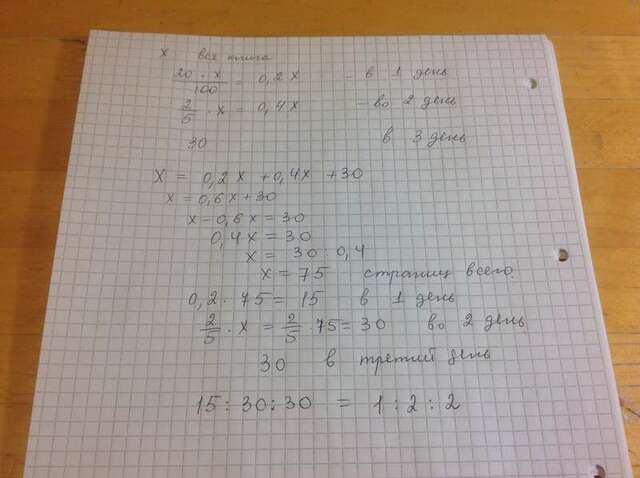 x вся книга
20 · x / 100 = 0,2x - в 1 день
2/5 · x = 0,4x - во 2 день
30 в 3 день
x = 0,2x + 0,4x + 30
x = 0,6x + 30
x - 0,6x = 30
0,4x = 30
x = 30 : 0,4
x = 75 страниц всего.
0,2 · 75 = 15 в 1 день
2/5 · x = 2/5 · 75 = 30 во 2 день
30 в третий день
15 : 30 : 30 = 1 : 2 : 2